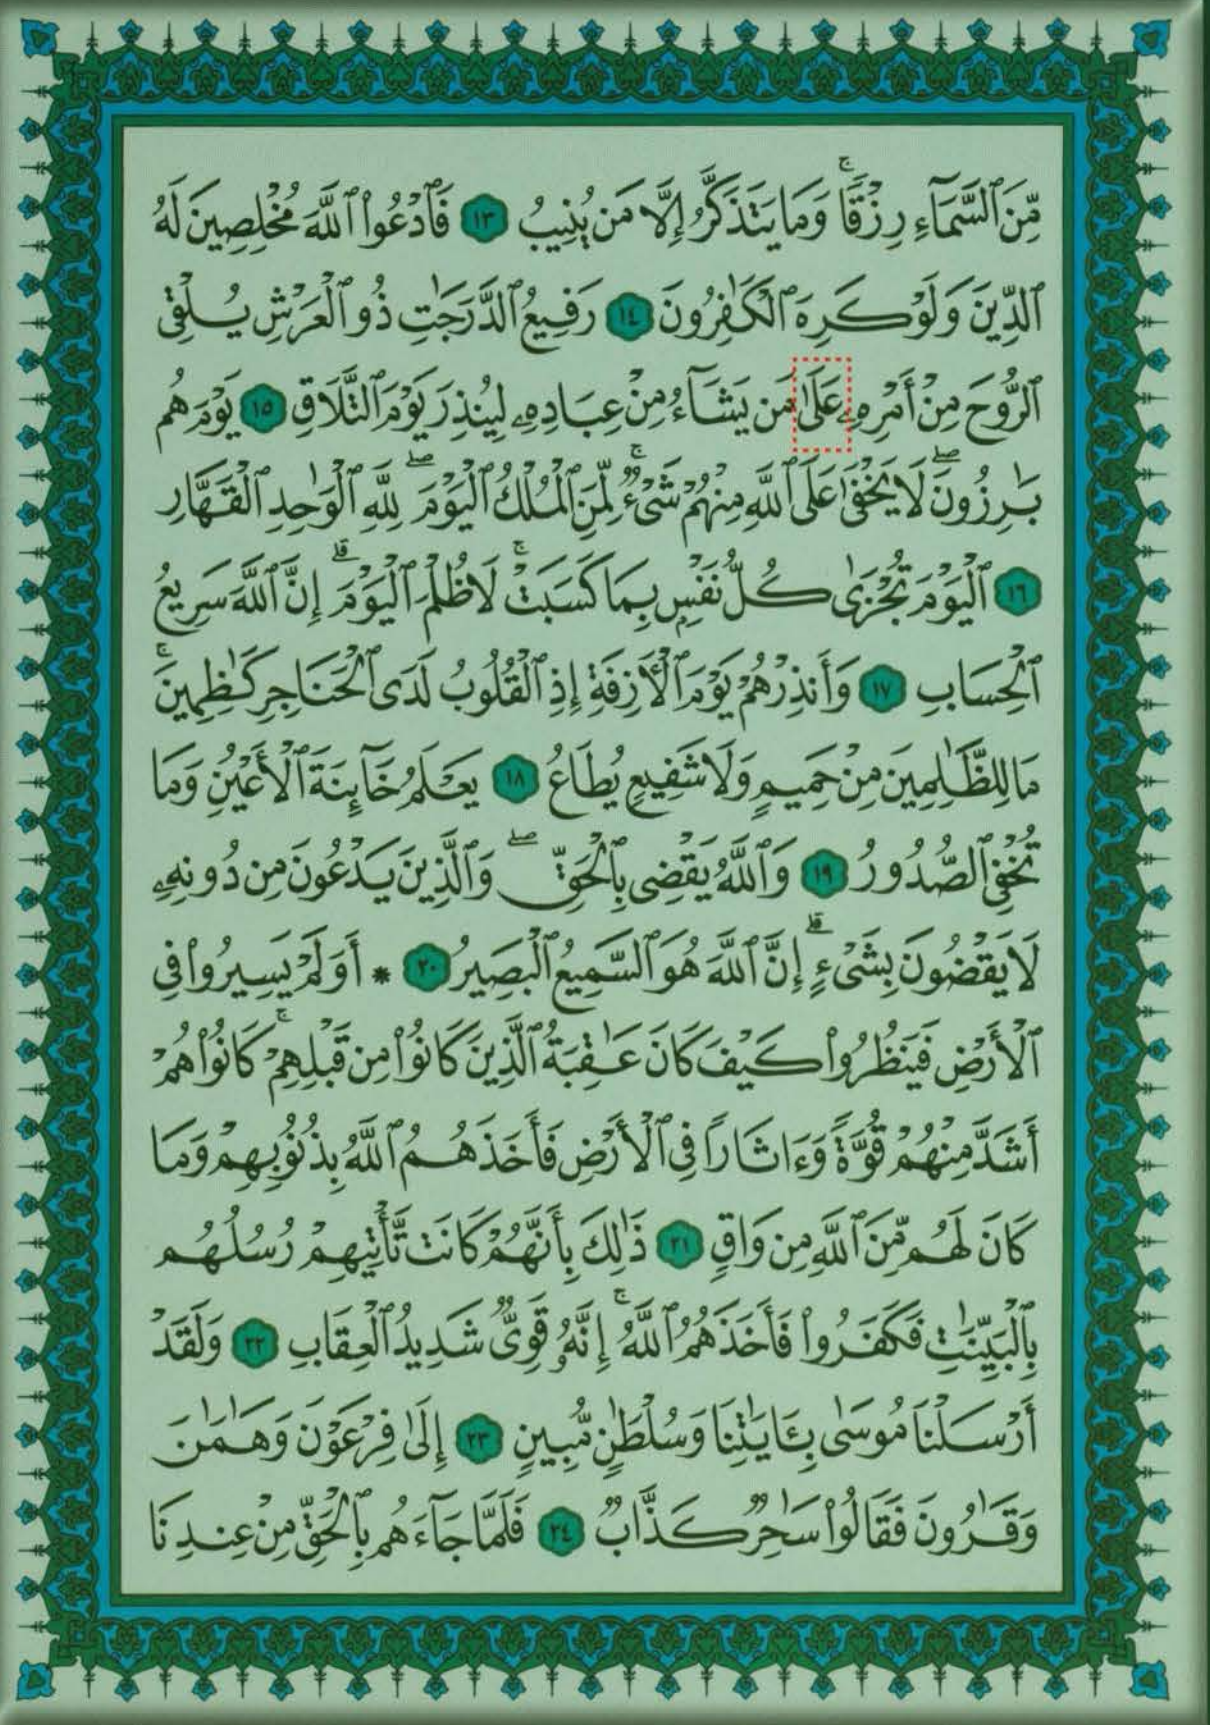 مِّنَ ٱلسَّمَآءِ رِزْقًا ۚ وَمَا يَتَذَكَّرُ إِلَّا مَن يُنِيبُ ١٣ فَٱدْعُوا۟ ٱللَّهَ مُخْلِصِينَ لَهُ
ٱلدِّينَ وَلَوْ كَرِهَ ٱلْكَٰفِرُونَ ١٤ رَفِيعُ ٱلدَّرَجَٰتِ ذُو ٱلْعَرْشِ يُلْقِى
ٱلرُّوحَ مِنْ أَمْرِهِۦ عَلَىٰ مَن يَشَآءُ مِنْ عِبَادِهِۦ لِيُنذِرَ يَوْمَ ٱلتَّلَاقِ ١٥ يَوْمَ هُم
بَٰرِزُونَ ۖ لَا يَخْفَىٰ عَلَى ٱللَّهِ مِنْهُمْ شَىْءٌ ۚ لِّمَنِ ٱلْمُلْكُ ٱلْيَوْمَ ۖ لِلَّهِ ٱلْوَٰحِدِ ٱلْقَهَّارِ
١٦ ٱلْيَوْمَ تُجْزَىٰ كُلُّ نَفْسٍۭ بِمَا كَسَبَتْ ۚ لَا ظُلْمَ ٱلْيَوْمَ ۚ إِنَّ ٱللَّهَ سَرِيعُ
ٱلْحِسَابِ ١٧ وَأَنذِرْهُمْ يَوْمَ ٱلْـَٔازِفَةِ إِذِ ٱلْقُلُوبُ لَدَى ٱلْحَنَاجِرِ كَٰظِمِينَ ۚ
مَا لِلظَّٰلِمِينَ مِنْ حَمِيمٍ وَلَا شَفِيعٍ يُطَاعُ ١٨ يَعْلَمُ خَآئِنَةَ ٱلْأَعْيُنِ وَمَا
تُخْفِى ٱلصُّدُورُ ١٩ وَٱللَّهُ يَقْضِى بِٱلْحَقِّ ۖ وَٱلَّذِينَ يَدْعُونَ مِن دُونِهِۦ
لَا يَقْضُونَ بِشَىْءٍ ۗ إِنَّ ٱللَّهَ هُوَ ٱلسَّمِيعُ ٱلْبَصِيرُ ٢٠ * أَوَلَمْ يَسِيرُوا۟ فِى
ٱلْأَرْضِ فَيَنظُرُوا۟ كَيْفَ كَانَ عَٰقِبَةُ ٱلَّذِينَ كَانُوا۟ مِن قَبْلِهِمْ ۚ كَانُوا۟ هُمْ
أَشَدَّ مِنْهُمْ قُوَّةً وَءَاثَارًا فِى ٱلْأَرْضِ فَأَخَذَهُمُ ٱللَّهُ بِذُنُوبِهِمْ وَمَا
كَانَ لَهُم مِّنَ ٱللَّهِ مِن وَاقٍ ٢١ ذَٰلِكَ بِأَنَّهُمْ كَانَت تَّأْتِيهِمْ رُسُلُهُم
بِٱلْبَيِّنَٰتِ فَكَفَرُوا۟ فَأَخَذَهُمُ ٱللَّهُ ۚ إِنَّهُۥ قَوِىٌّ شَدِيدُ ٱلْعِقَابِ ٢٢ وَلَقَدْ
أَرْسَلْنَا مُوسَىٰ بِـَٔايَٰتِنَا وَسُلْطَٰنٍ مُّبِينٍ ٢٣ إِلَىٰ فِرْعَوْنَ وَهَٰمَٰنَ
وَقَٰرُونَ فَقَالُوا۟ سَٰحِرٌ كَذَّابٌ ٢٤ فَلَمَّا جَآءَهُم بِٱلْحَقِّ مِنْ عِندِنَا